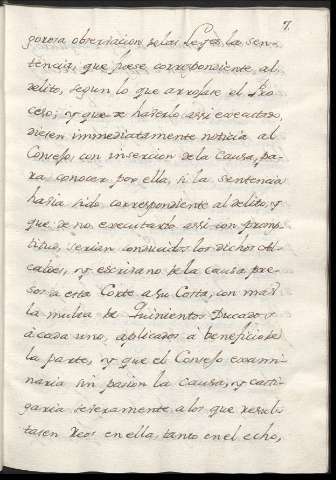 7.
gorosa observacion de las Leyes la sen-
tencia, que fuese correspondiente al
delito, segun lo que arrojase el Pro
ceso; y que de haverlo assi executado,
diesen immediatamente noticia al
Consejo, con insercion de la Causa, pa-
ra conocer por ella, si la sentencia
havia sido correspondiente al delito, y
que de no executarlo assi con pron-
titud, serian conducidos los dichos Al-
caldes, y escrivano de la causa pre-
sos a esta Corte a su Costa, con mas
la multa de Quinientos Ducados
a cada uno, aplicados à beneficio de
la parte, y que el Consejo exami-
naria sin pasion la Causa, y casti-
garia severamente a los que resul-
tasen Reos en ella, tanto en el echo,